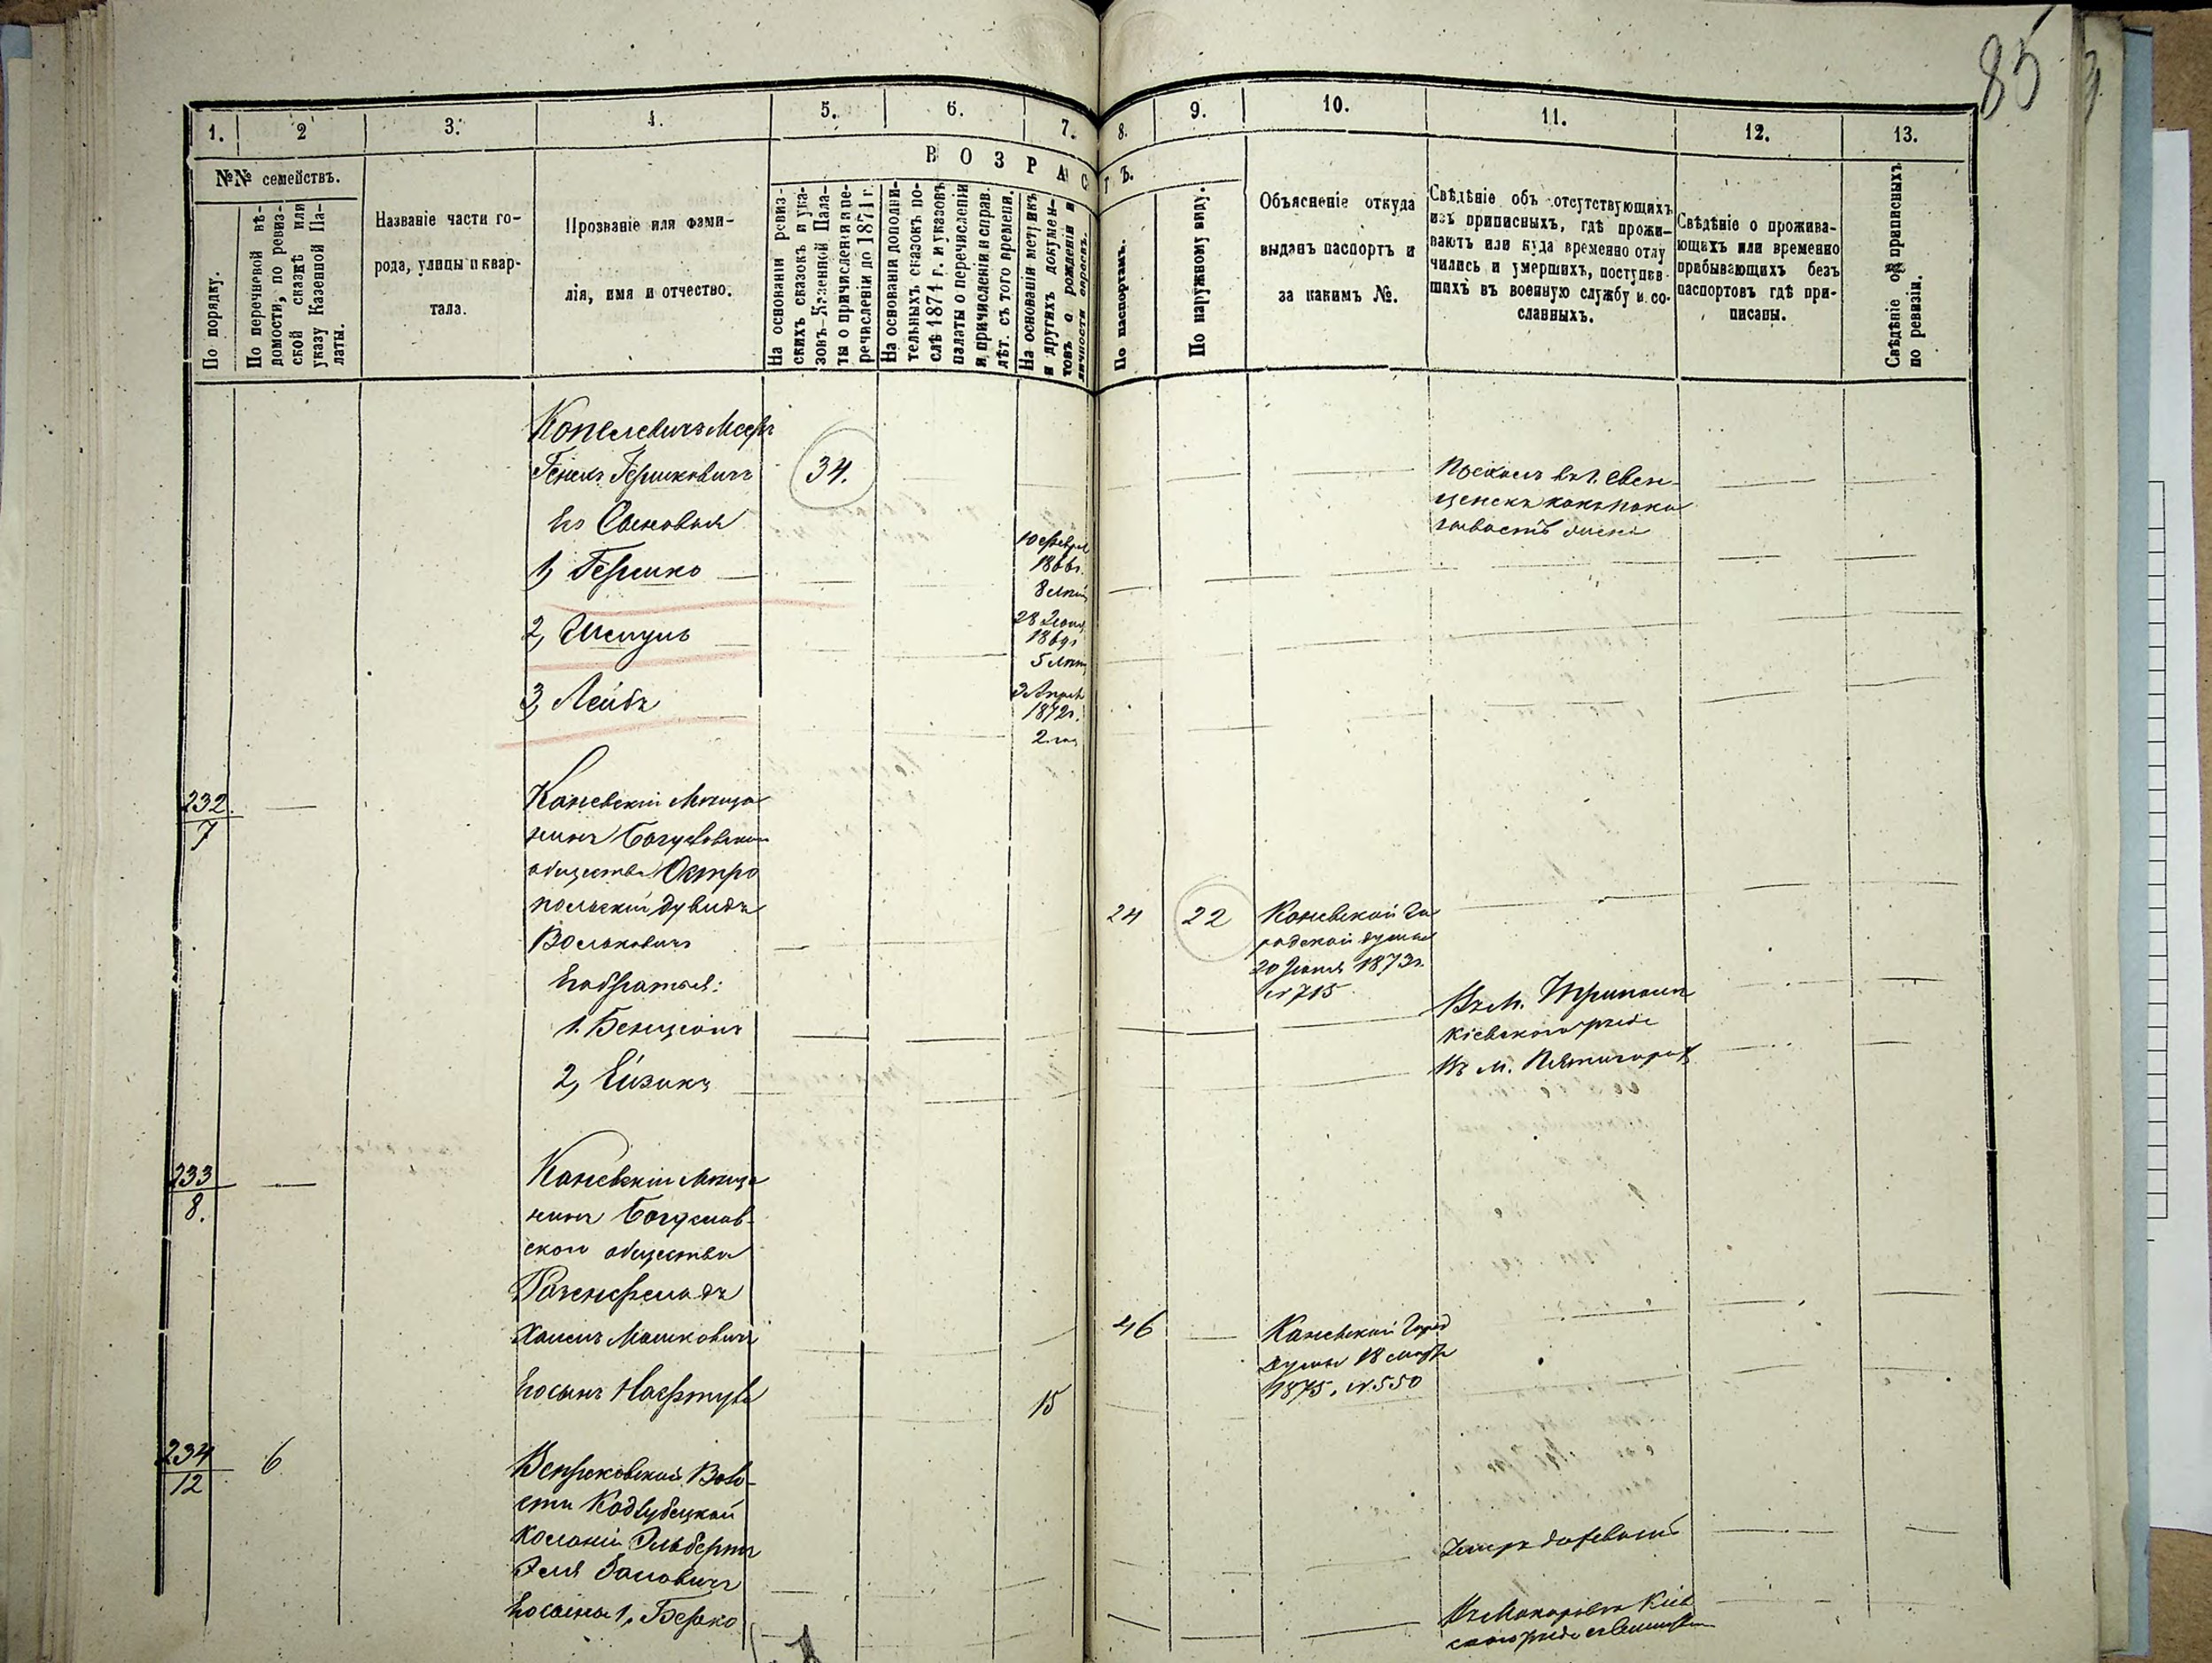 85
1.
2
3.
4.
5.
6.
7.
8.
9.
10.
11.
12.
13.
№№ семействъ.
По порядку.
По перечневой вѣ-
домости, по ревиз-
ской сказкѣ или
указу Казенной Па-
латы.
Названіе части го-
рода, улицы и квар-
тала.
Прозваніе или фами-
лія, имя и отчество.
ВОЗРАСТЪ.
На основаніи ревиз-
скихъ сказокъ и ука-
зовъ Казенной Пала-
ты о причисленіи и пе-
речисленіи до 1874 г.
На основаніи дополни-
тельныхъ сказокъ по-
слѣ 1874 г. и указовъ
палаты о перечисленіи
и причисленіи и справ.
лѣт. съ того времени.
На основаніи метрикъ
и другихъ докумен-
товъ о рожденіи и
личности евреевъ.
По паспортамъ.
По наружному виду.
Объясненіе откуда
выданъ паспортъ и
за какимъ №.
Свѣдѣніе объ отсутствующихъ
изъ приписныхъ, гдѣ прожи-
ваютъ или куда временно отлу
чились и умершихъ, поступив-
шихъ въ военную службу и со-
сланныхъ.
Свѣдѣніе о прожива-
ющихъ или временно
прибывающихъ безъ
паспортовъ гдѣ при-
писаны.
Свѣдѣніе о приписныхъ
по ревизіи.
Копелевичъ Мееръ
Гершковичъ
34.
Его Сыновья
1, Гершко
10 Февр
1866г.
8 лѣтъ
2,
28
1869г
5 лѣтъ
3, Лейбъ
3 Апрѣл
1872г.
2 год
232
7
Каневскій Мѣща
нинъ Богуславскаго
общества Остро
польскій Дувидъ
Волковичъ
24
22
Каневской Го
родской думы
20 Іюня 1873г.
№ 715
Его братья:
1. Бенціонъ
Въ М. Триполи
Кіевскаго уѣзда
2, Ейзикъ
Въ м. Пятигорахъ
233
8.
Каневскій Мѣща
нинъ Богуслав-
скаго общества
Хаимъ Мошковичъ
46
Каневской Город
думы 18
1875, № 550
Его сынъ Нафтула
15
234
12
6
Веприковской Воло-
сти Кодлубецкой
Колоніи Эльбертъ
Его сыны 1, Берко